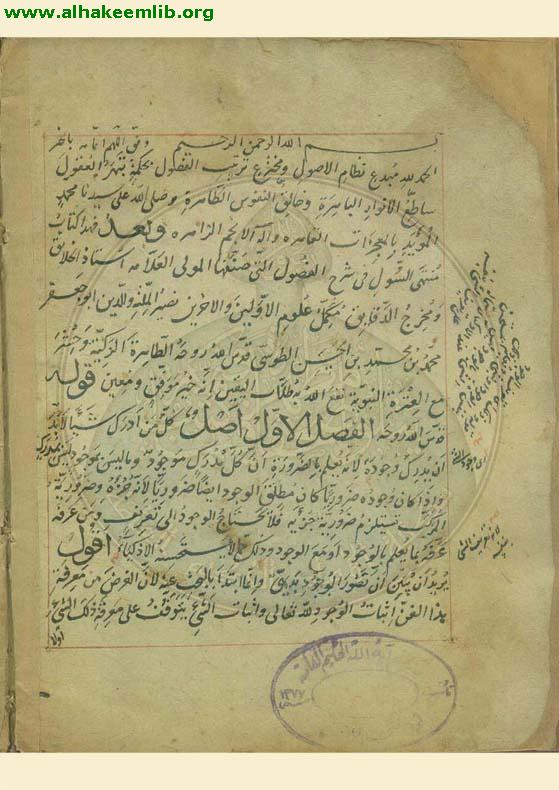 www.alhakeemlib.org
بسم الله الرحمن الرحيم وفق اللهم اتمامه بالخير
الحمد لله مبدع نظام الاصول ومخترع ترتيب الفصول بحكمة تبهر العقول
ساطع الانوار الباهرة وخالق النفوس الطاهرة وصلى الله على سيدنا محمد
المؤيد بالمعجزات القاهره وآله الانجم الزاهره وبعد فهذا كتاب
منتهى السئول فى شرح الفصول التى صنفها المولى العلامه استاذ الخلايق
ومخرج الدقايق مكمل علوم الاولين والاخرين نصير الملة والدين ابو جعفر
محمد بن محمد بن الحسن الطوسى قدس الله روحه الطاهرة الزكية وحشره
مع العترة النبوية نفع الله به طلاب اليقين انه خير موفق ومعين قوله
قدس الله روحه الفصل الاول اصل كل من ادرك شيئا لا بد
ان يدرك وجوده لانه يعلم بالضرورة ان كل مدرك موجود وما ليس موجود ليس بمدرك
واذا كان وجوده ضروريا كان مطلق الوجود ايضا ضروريا لانه جزؤه وضرورية
المركب تستلزم ضرورية جزئه فلا يحتاج الوجود الى تعريف ومن عرفه
عرفه بما يعلم بالوجود او مع الوجود وذلك مما لا يستحسنه الاذكياء اقول
يريد ان يبين ان تصور الوجود بديهى وانما ابتدا بالبحث عنه لان الغرض من معرفة
هذا الفن اثبات الوجود لله تعالى واثبات الشئ يتوقف على معرفة ذلك الشئ
اولا
آية الله الحكيم العامة
١٣٧٧